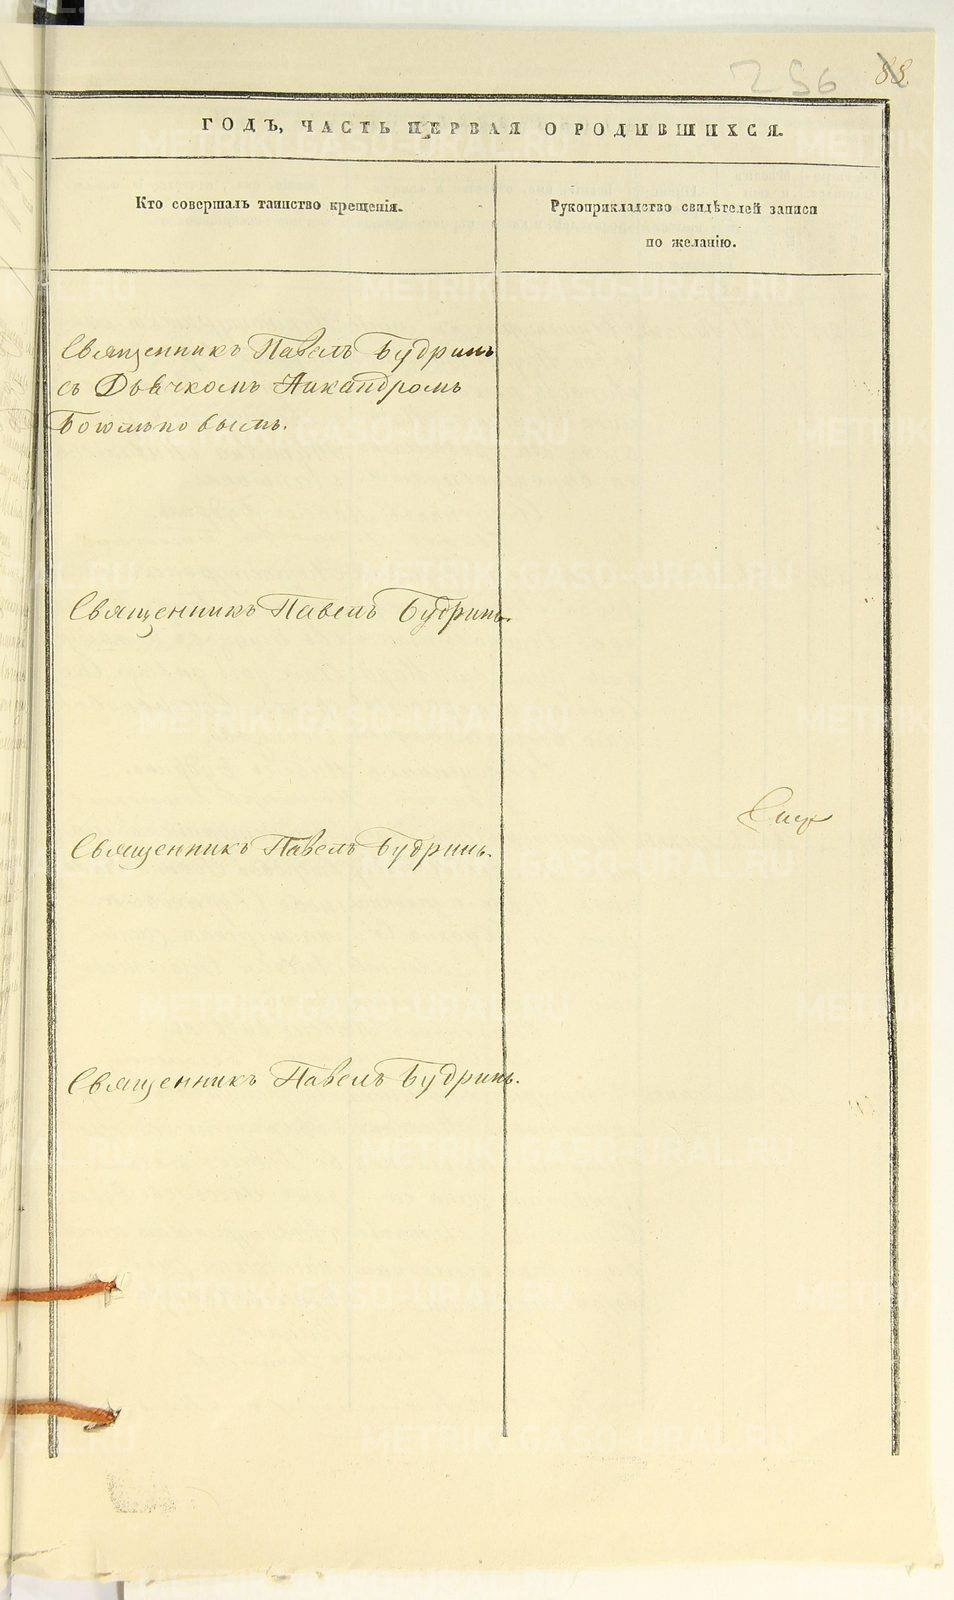 256 88.
ГОДЪ, ЧАСТЬ ПЕРВАЯ О РОДИВШИХСЯ.
Кто совершалъ таинство крещенія.
Рукоприкладство свидѣтелей записи
по желанію.
Священникъ Павелъ Будринъ
съ Дьячкомъ Никандромъ
Священникъ Павелъ Будринъ.
Священникъ Павелъ Будринъ.
Священникъ Павелъ Будринъ.
METRIKI.GASO-URAL.RU